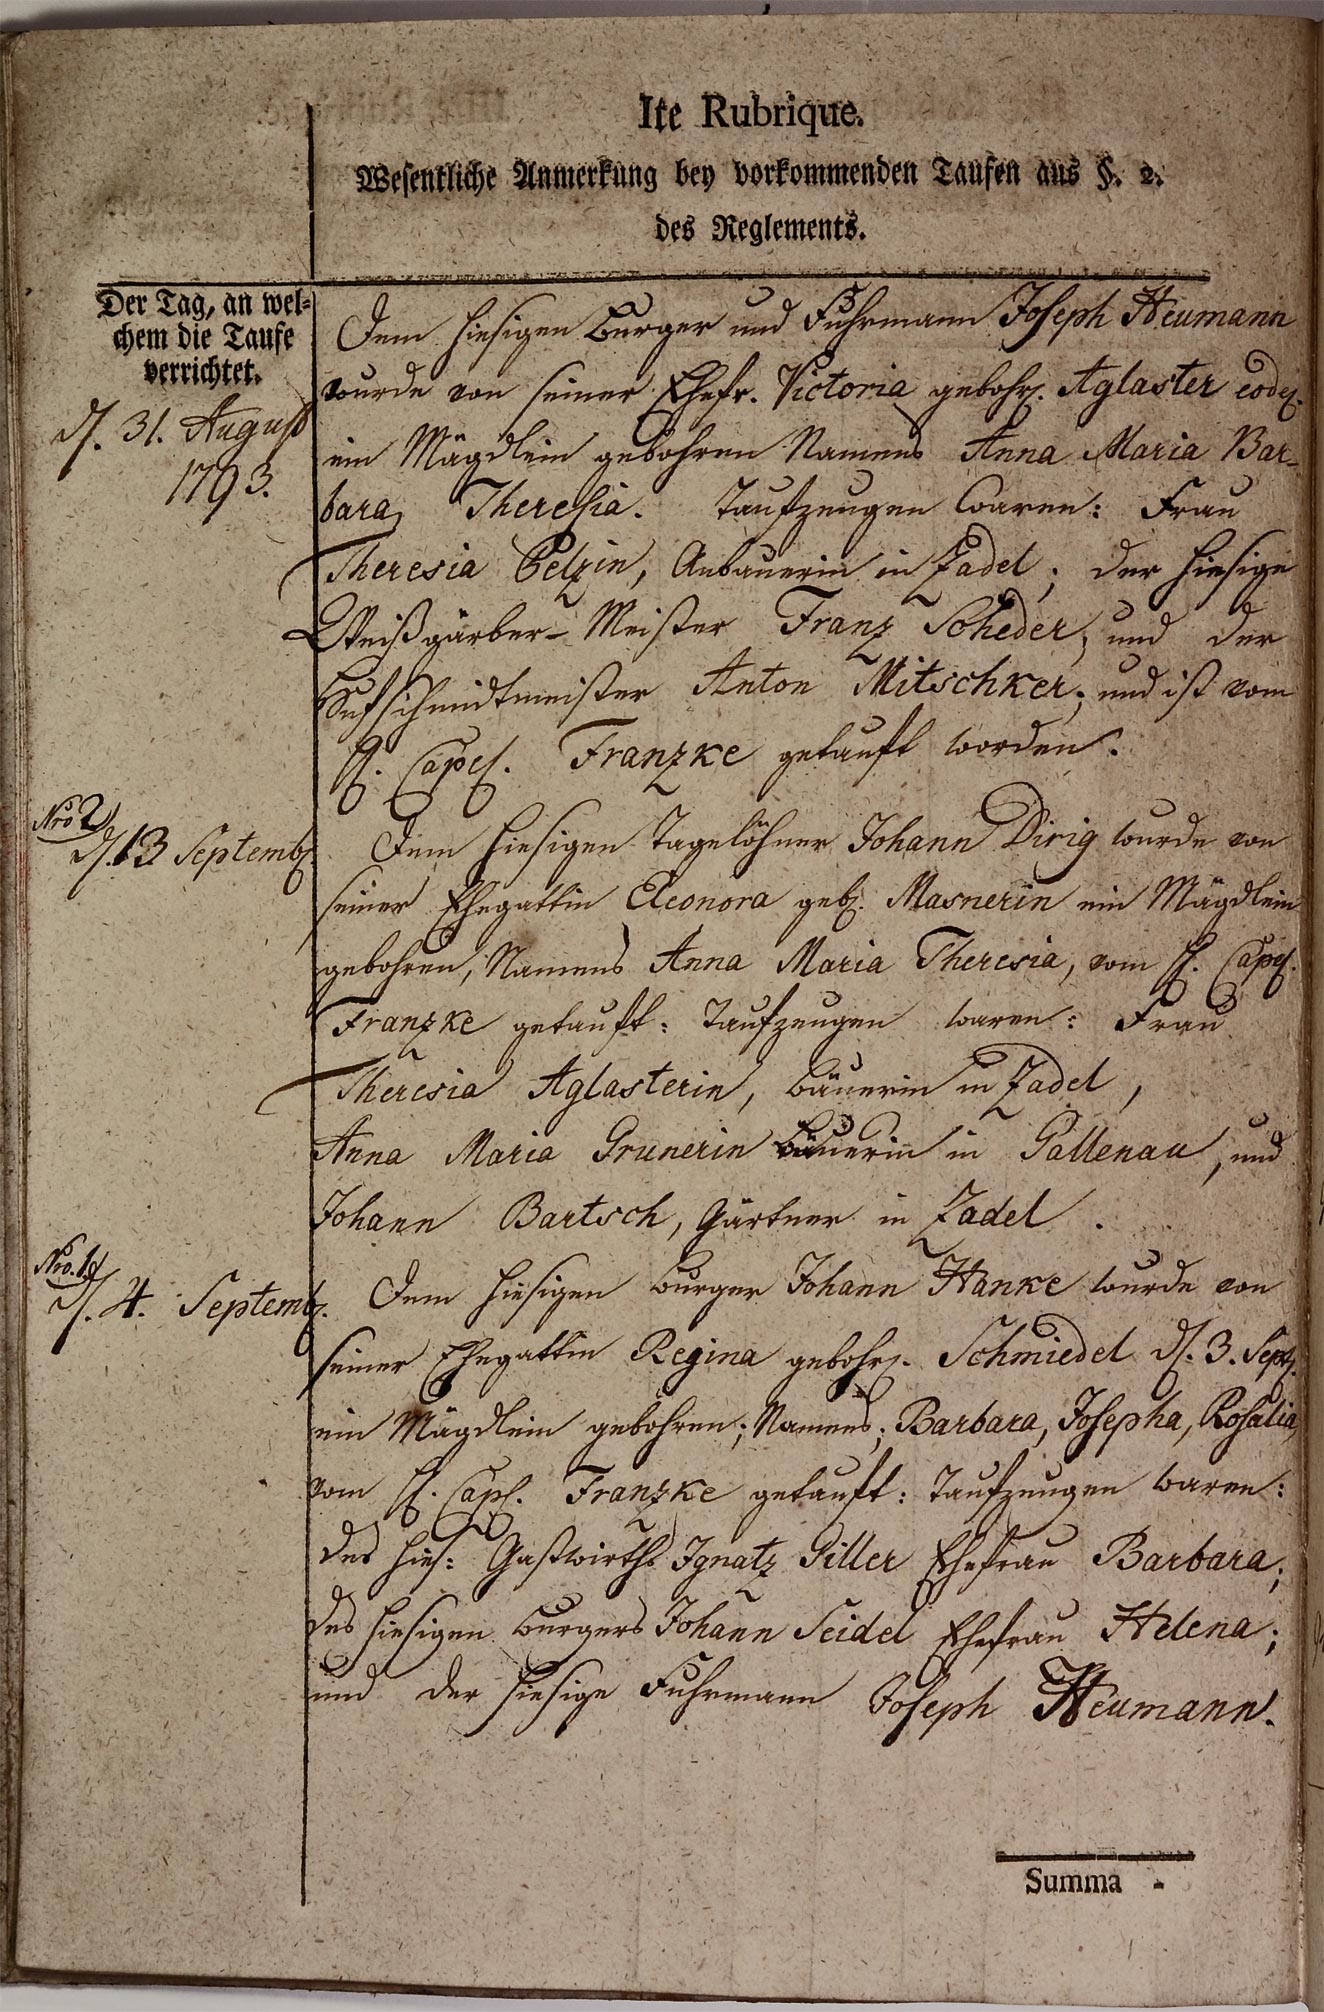 Ite Rubrique.
Wesentliche Anmerkung bey vorkommenden Taufen aus §. 2.
des Reglements.
Der Tag, an wel-
chem die Taufe
verrichtet.
d. 31. August
1793.
Dem hiesigen Burger und Fuhrmann Joseph Heumann
wurde von seiner Ehefr. Victoria gebohr. Aglaster eod.
ein Mägdlein gebohren Namens Anna Maria Bar-
bara Theresia. Taufzeugen waren: Frau
Theresia Pelzin, Anbauerin in Zadel; der hiesige
Weißgärber-Meister Franz Scheder, und der
Hufschmidtmeister Anton Mitschker; und ist vom
H. Capl. Franzke getauft worden.
Nro 2
d. 13 Septemb.
Dem hiesigen Tagelöhner Johann Dirig wurde von
seiner Ehegattin Eleonora geb. Masnerin ein Mägdlein
gebohren, Namens Anna Maria Theresia, vom H. Capl.
Franzke getauft: Taufzeugen waren: Frau
Theresia Aglasterin, Bäuerin in Zadel,
Anna Maria Grunerin Bäuerin in Gallenau, und
Johann Bartsch, Gärtner in Zadel.
Nro. 1
d. 4. Septemb.
Dem hiesigen Burger Johann Hanke wurde von
seiner Ehegattin Regina gebohr. Schmiedel d. 3. Sept.
ein Mägdlein gebohren; Namens; Barbara, Josepha, Rosalia,
vom H. Capl. Franzke getauft: Taufzeugen waren:
des hies: Gastwirths Ignatz Giller Ehefrau Barbara;
des hiesigen Burgers Johann Seidel Ehefrau Helena;
und der hiesige Fuhrmann Joseph Heumann.
Summa -